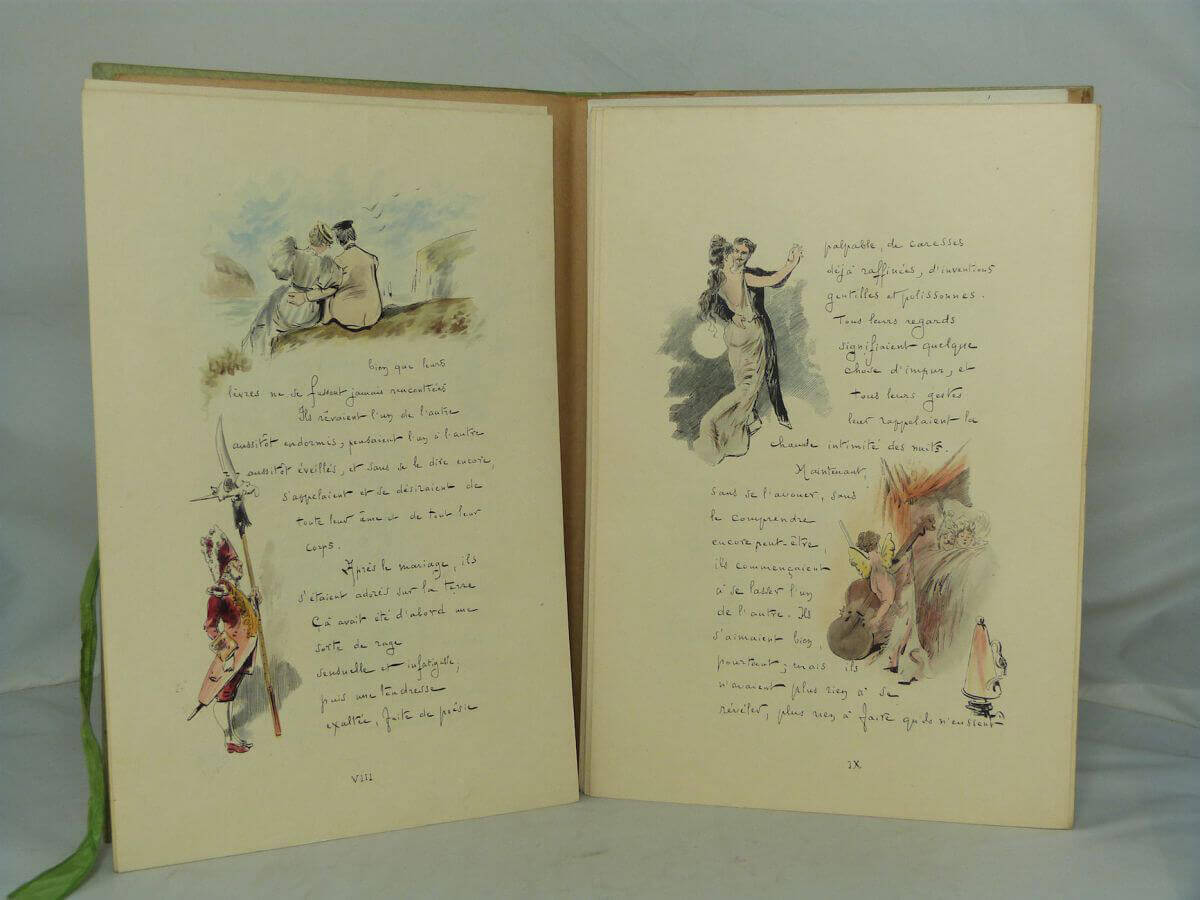 bien que leurs
lèvres ne se fussent jamais rencontrées
Ils rêvaient l'un de l'autre
aussitôt endormis, pensaient l'un à l'autre
aussitôt éveillés, et sans se le dire encore,
s'appelaient et se désiraient de
toute leur âme et de tout leur
corps.
Après le mariage, ils
s'étaient adorés sur la terre
Ç'avait été d'abord une
sorte de rage
sensuelle et infatigable,
puis une tendresse
exaltée, faite de poésie
VIII
palpable, de caresses
déjà raffinées, d'inventions
gentilles et polissonnes.
Tous leurs regards
signifiaient quelque
chose d'impur, et
tous leurs gestes
leur rappelaient la
chaude intimité des nuits.
Maintenant,
sans se l'avouer, sans
le comprendre
encore peut-être,
ils commençaient
à se lasser l'un
de l'autre. Ils
s'aimaient bien,
pourtant; mais ils
n'avaient plus rien à se
révéler, plus rien à faire qu'ils n'eussent
IX